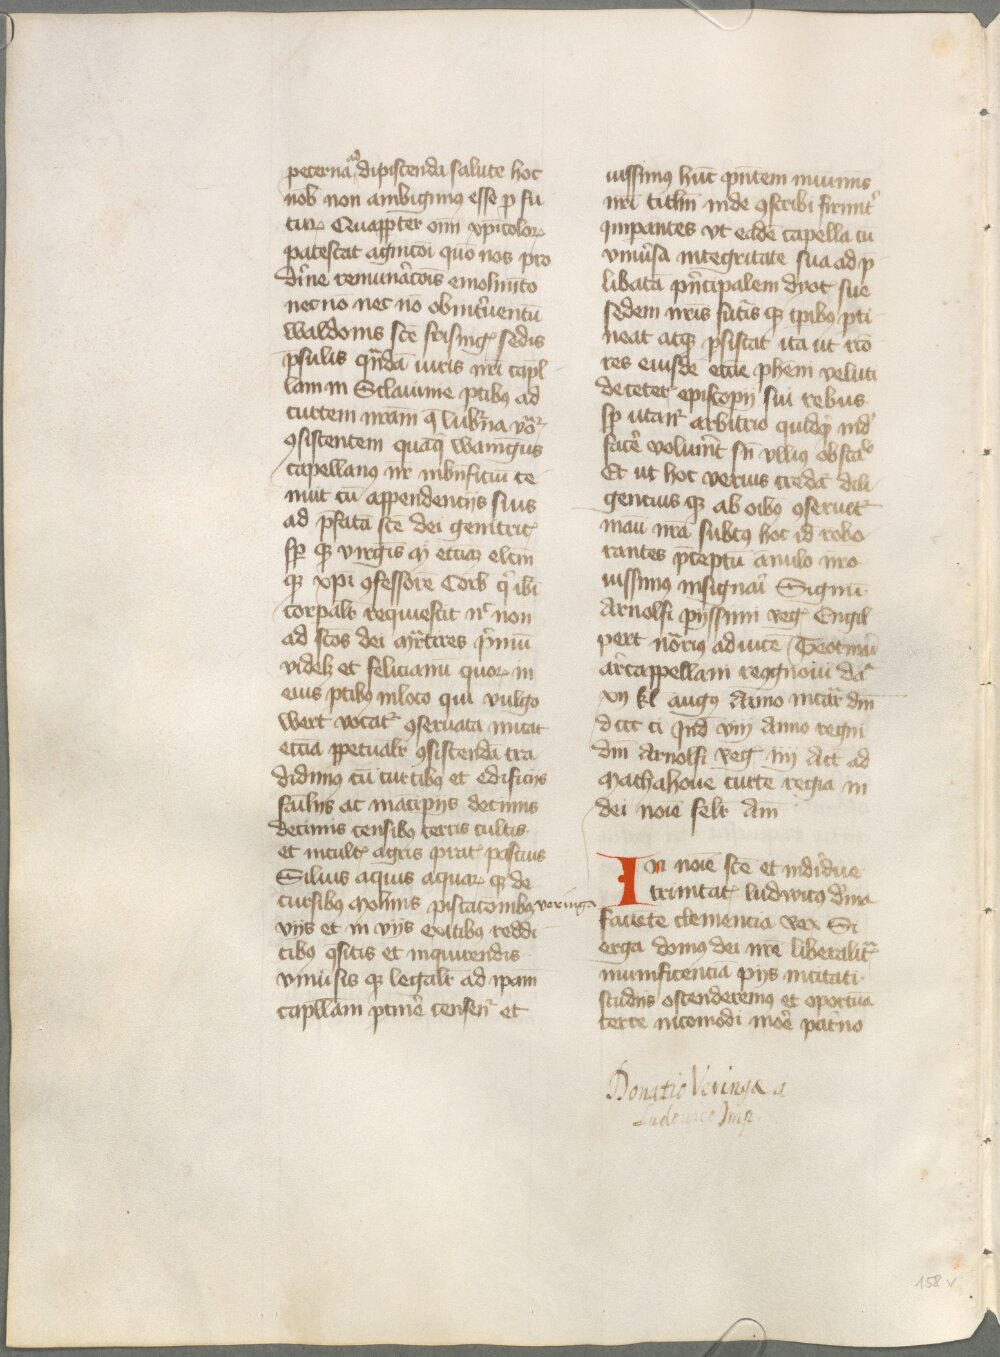 peternā ad dipiscenda salute hoc
nob̄ non ambigimus esse p̄ fu
tur̄ Quapp̄ter om̄i xp̄icolor̄
patescat agnicōi quo nos pro
diu͛ne remun̄acōis emolumto
nec no nec nō ob int͛uentū
waldonis sc̄e frisinḡ sedis
p͛sulis qn̄dā iuris nr̄i capl̄
lam in Sclauinie p̄tibꝯ ad
curtem nr̄am
9sistentem quāq̄ waningus
capellanꝯ nr̄ in bn̄ficiū te
nuit cū appendencijs suis
ad p̄fatā sc̄e dei genitric̄
sp̄ qꝫ virg̅is
qꝫ xp̄i 9fessore Corb̄ q͛ ibi
corpalr̄ requiescit n͛c non
ad sc̄os dei mr̄tires p͛mū
videlꝫ et felicianū quor̄ in
eius p̄tibꝯ in loco qui vulgo
wert vocat͛ 9seruata
ecciā ppetualr̄ 9sistendā tra
didimꝯ cū curtibꝯ et edificijs
ac mācipijs decimis
decimis censibꝯ terris cultis
et incult̄ agris prat̄ pascuis
Siluis aquis aquar̄ qꝫ de
cursibꝯ molinis piscacōnibꝯ
vijs et in vijs exitibꝯ reddi
tibꝯ q̄sitis et inquirendis
vniu͛sis qꝫ legalr̄ ad ip̄am
capl̄lam p̄tin͛e censen͛t et
iussimus hūc p̄ntem
nr̄i inde 9scribi firmit͛
impantes vt eadē capella cū
vniu͛sa integritate sua ad p̄
libatā p͛ncipalem dyoc̄ sue
sedem nr̄is fut͛is qꝫ tp̄ibꝯ p̄ti
neat atqꝫ p̄sistat ita ut rc̄o
res eiusdē ecc̄ie phēm veluti
de ceter̄ episcopij sui rebus
sp̄ utan͛t arbitrio quidq̄ ind͛
fac͛e voluīnt sn̄ vlliꝯ obstac̄lo
Et ut hoc verius credāt dili
gencius qꝫ ab oībꝯ 9seruet͛
manū nr̄a subtꝯ hoc id robo
rantes p͛ceptū anulo nr̄o
iussimus insignari Signū
Arnolfi pijssimi reḡ Engil
pert n͛oriꝯ ad uicē Teotmāri
arcappellani recognoui Dat̄
xij kl̄ augꝯ Anno incar̄ dn̄i
dccc ci Ind̄ viij Anno regni
dn̄i Arnolfi reḡ iiij Act̄ ad
Mathahoue curte regia in
dei noīe felr̄ Am̄
In noīe sc̄e et indiu͛due
trinitat̄ ludwicꝯ d͛ina
fauete clemencia rex Si
erga domꝯ dei nr̄e liberalit͛
munificenciā pijs incitati
studijs ostenderemꝯ et oportuā
terre incomodi moē
veringa
Donatio Veringæ a
Ludouico Imp.
158 v